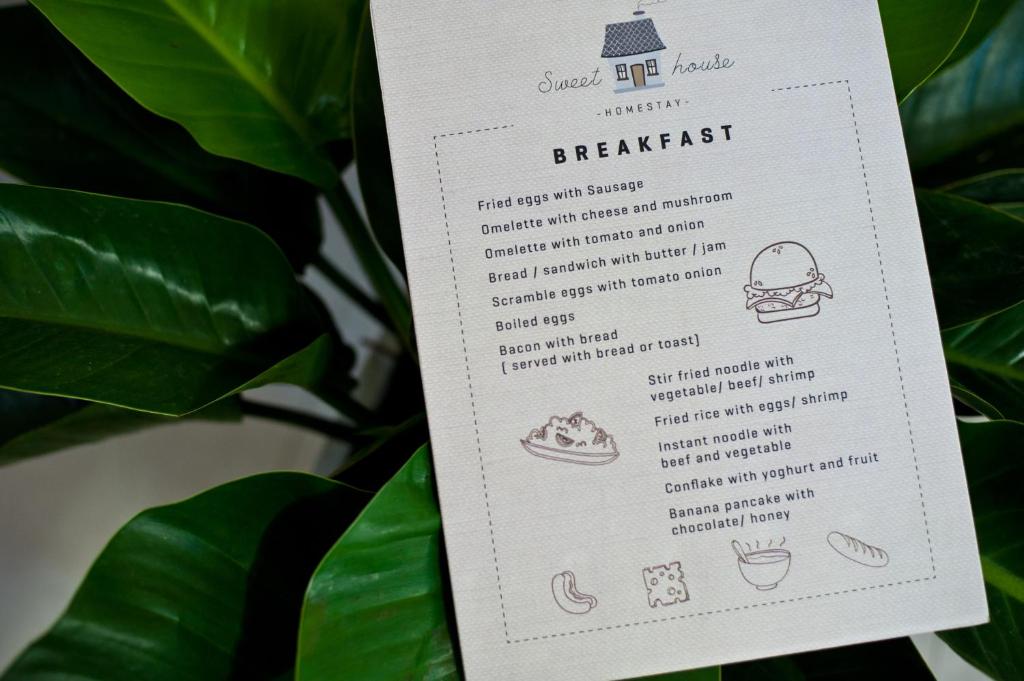 Sweet house
-HOMESTAY-
BREAKFAST
Fried eggs with Sausage
Omelette with cheese and mushroom
Omelette with tomato and onion
Bread / sandwich with butter / jam
Scramble eggs with tomato onion
Boiled eggs
Bacon with bread
[ served with bread or toast]
Stir fried noodle with
vegetable/ beef/ shrimp
Fried rice with eggs/ shrimp
Instant noodle with
beef and vegetable
Conflake with yoghurt and fruit
Banana pancake with
chocolate/ honey